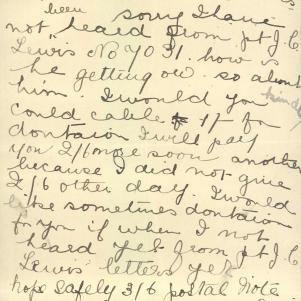 been sorry I have
not heard from pt J. C.
Lewis No 7031. how is
he getting on. so about
him. I would you kindly
could cable 1/- for
dontaion I will pay
you 2/6 more soon another
because I did not give
2/6 other day. I would
like sometimes dontaion
for you if when I not
heard yet from pt J. C
Lewis' letters yet
hope safely 3/6 postal note